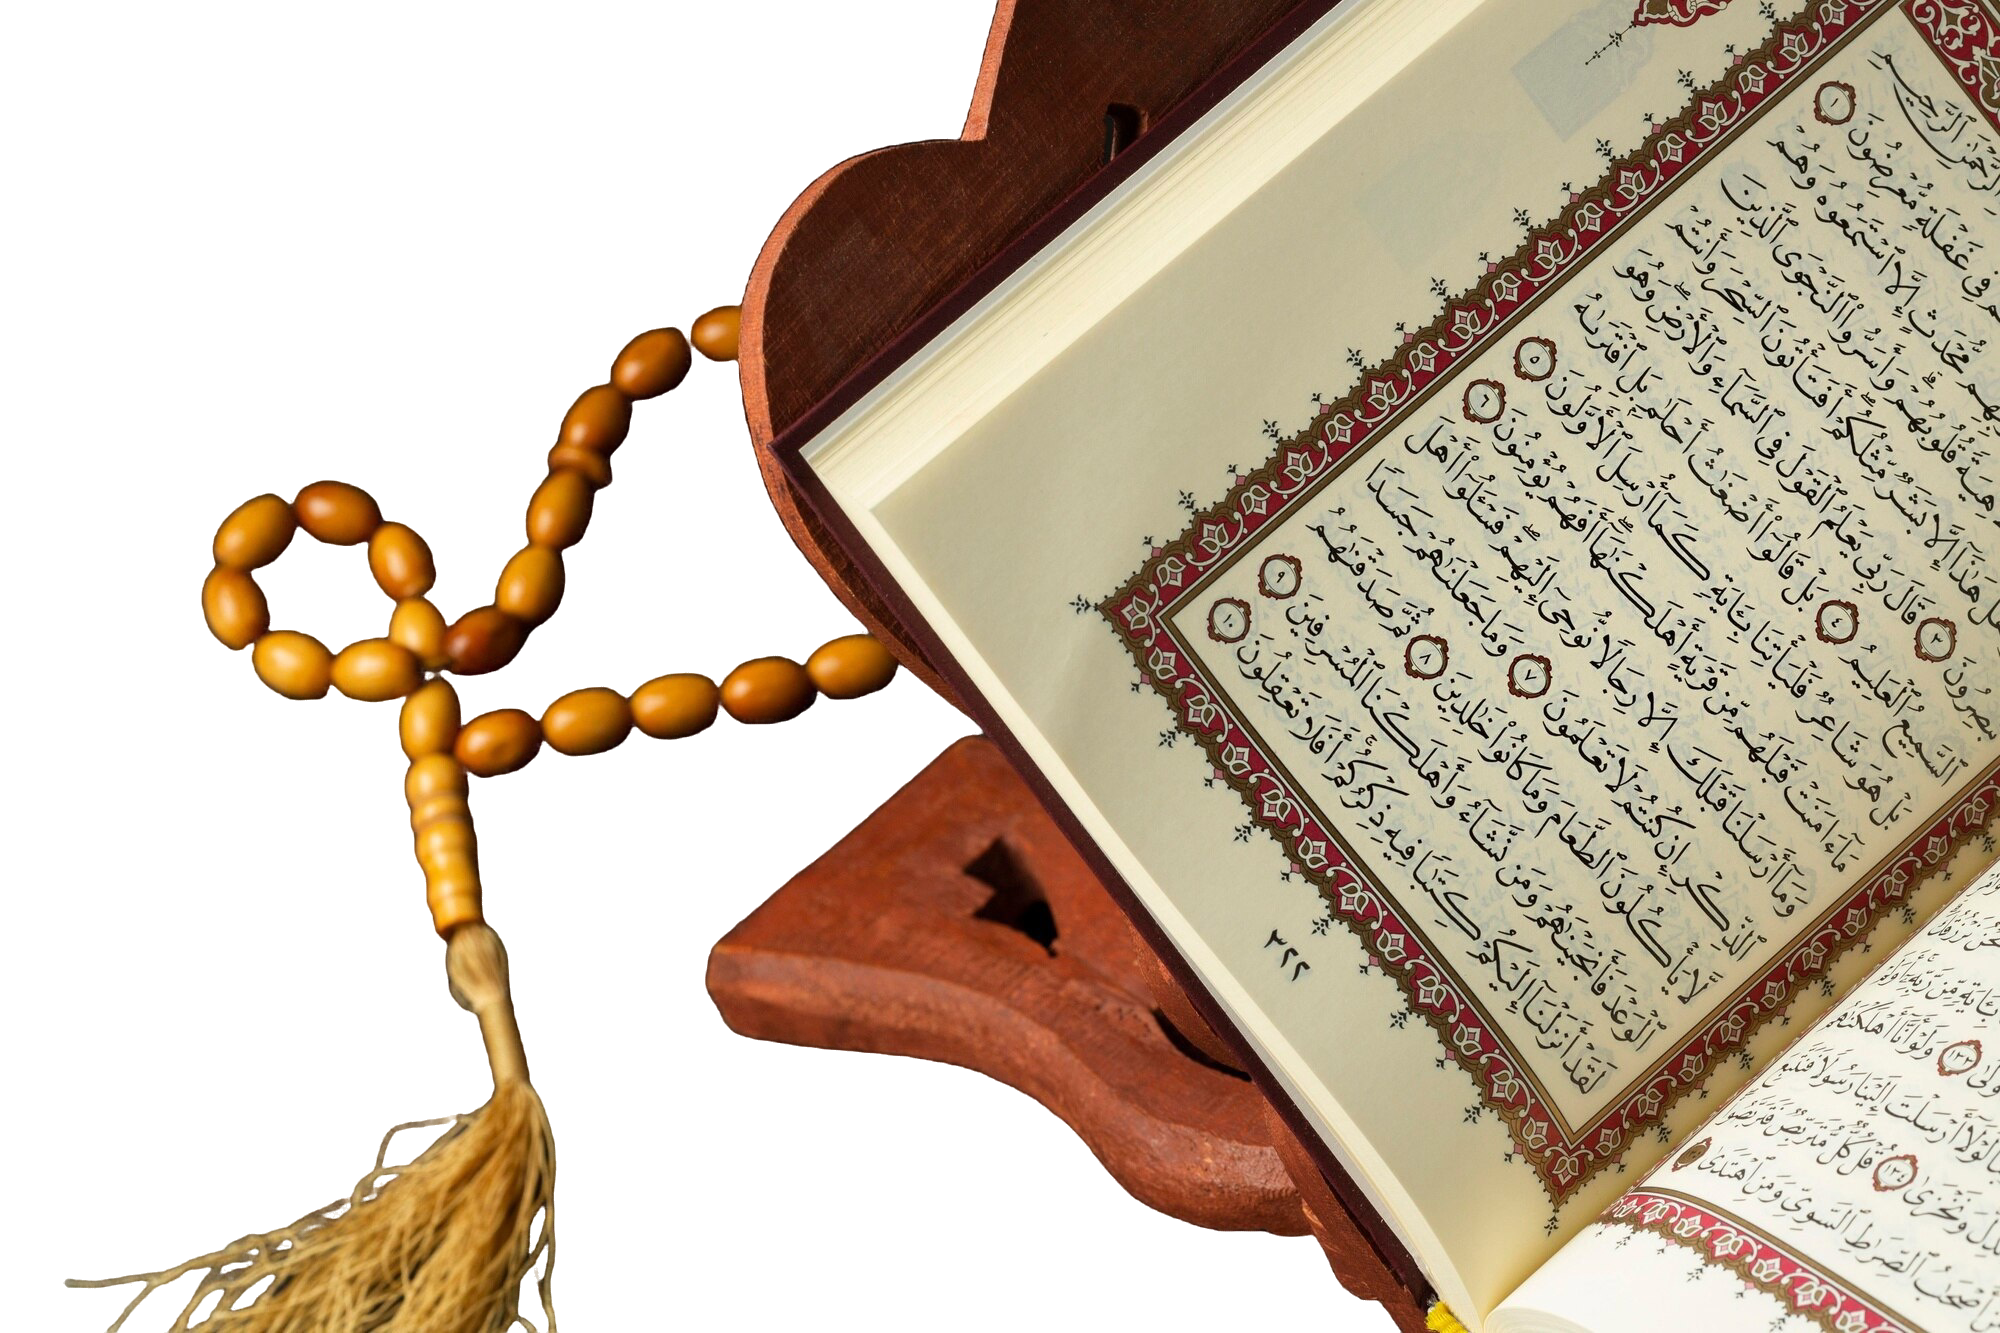 ٱلرَّحْمَٰنِ ٱلرَّحِيمِ
فِى غَفْلَةٍ مُّعْرِضُونَ ١
مُّحْدَثٍ إِلَّا ٱسْتَمَعُوهُ وَهُمْ
لَاهِيَةً قُلُوبُهُمْ وَأَسَرُّوا۟ ٱلنَّجْوَى ٱلَّذِينَ
هَلْ هَٰذَآ إِلَّا بَشَرٌ مِّثْلُكُمْ أَفَتَأْتُونَ ٱلسِّحْرَ وَأَنتُمْ
تُبْصِرُونَ ٣ قَالَ رَبِّى يَعْلَمُ ٱلْقَوْلَ فِى ٱلسَّمَآءِ وَٱلْأَرْضِ وَهُوَ
ٱلسَّمِيعُ ٱلْعَلِيمُ ٤ بَلْ قَالُوٓا۟ أَضْغَٰثُ أَحْلَٰمٍۭ بَلِ ٱفْتَرَىٰهُ
بَلْ هُوَ شَاعِرٌ فَلْيَأْتِنَا بِـَٔايَةٍ كَمَآ أُرْسِلَ ٱلْأَوَّلُونَ ٥
مَآ ءَامَنَتْ قَبْلَهُم مِّن قَرْيَةٍ أَهْلَكْنَٰهَآ أَفَهُمْ يُؤْمِنُونَ ٦
وَمَآ أَرْسَلْنَا قَبْلَكَ إِلَّا رِجَالًا نُّوحِىٓ إِلَيْهِمْ فَسْـَٔلُوٓا۟ أَهْلَ
ٱلذِّكْرِ إِن كُنتُمْ لَا تَعْلَمُونَ ٧ وَمَا جَعَلْنَٰهُمْ جَسَدًا
لَّا يَأْكُلُونَ ٱلطَّعَامَ وَمَا كَانُوا۟ خَٰلِدِينَ ٨ ثُمَّ صَدَقْنَٰهُمُ
ٱلْوَعْدَ فَأَنجَيْنَٰهُمْ وَمَن نَّشَآءُ وَأَهْلَكْنَا ٱلْمُسْرِفِينَ ٩
لَقَدْ أَنزَلْنَآ إِلَيْكُمْ كِتَٰبًا فِيهِ ذِكْرُكُمْ أَفَلَا تَعْقِلُونَ ١٠
٣٢٢
نَّحْنُ نَرْزُقُكَ
بِـَٔايَةٍ مِّن رَّبِّهِۦٓ أَوَلَمْ
١٣٣ وَلَوْ أَنَّآ أَهْلَكْنَٰهُم
لَوْلَآ أَرْسَلْتَ إِلَيْنَا رَسُولًا فَنَتَّبِعَ
وَنَخْزَىٰ ١٣٤ قُلْ كُلٌّ مُّتَرَبِّصٌ فَتَرَبَّصُوا۟
أَصْحَٰبُ ٱلصِّرَٰطِ ٱلسَّوِىِّ وَمَنِ ٱهْتَدَىٰ